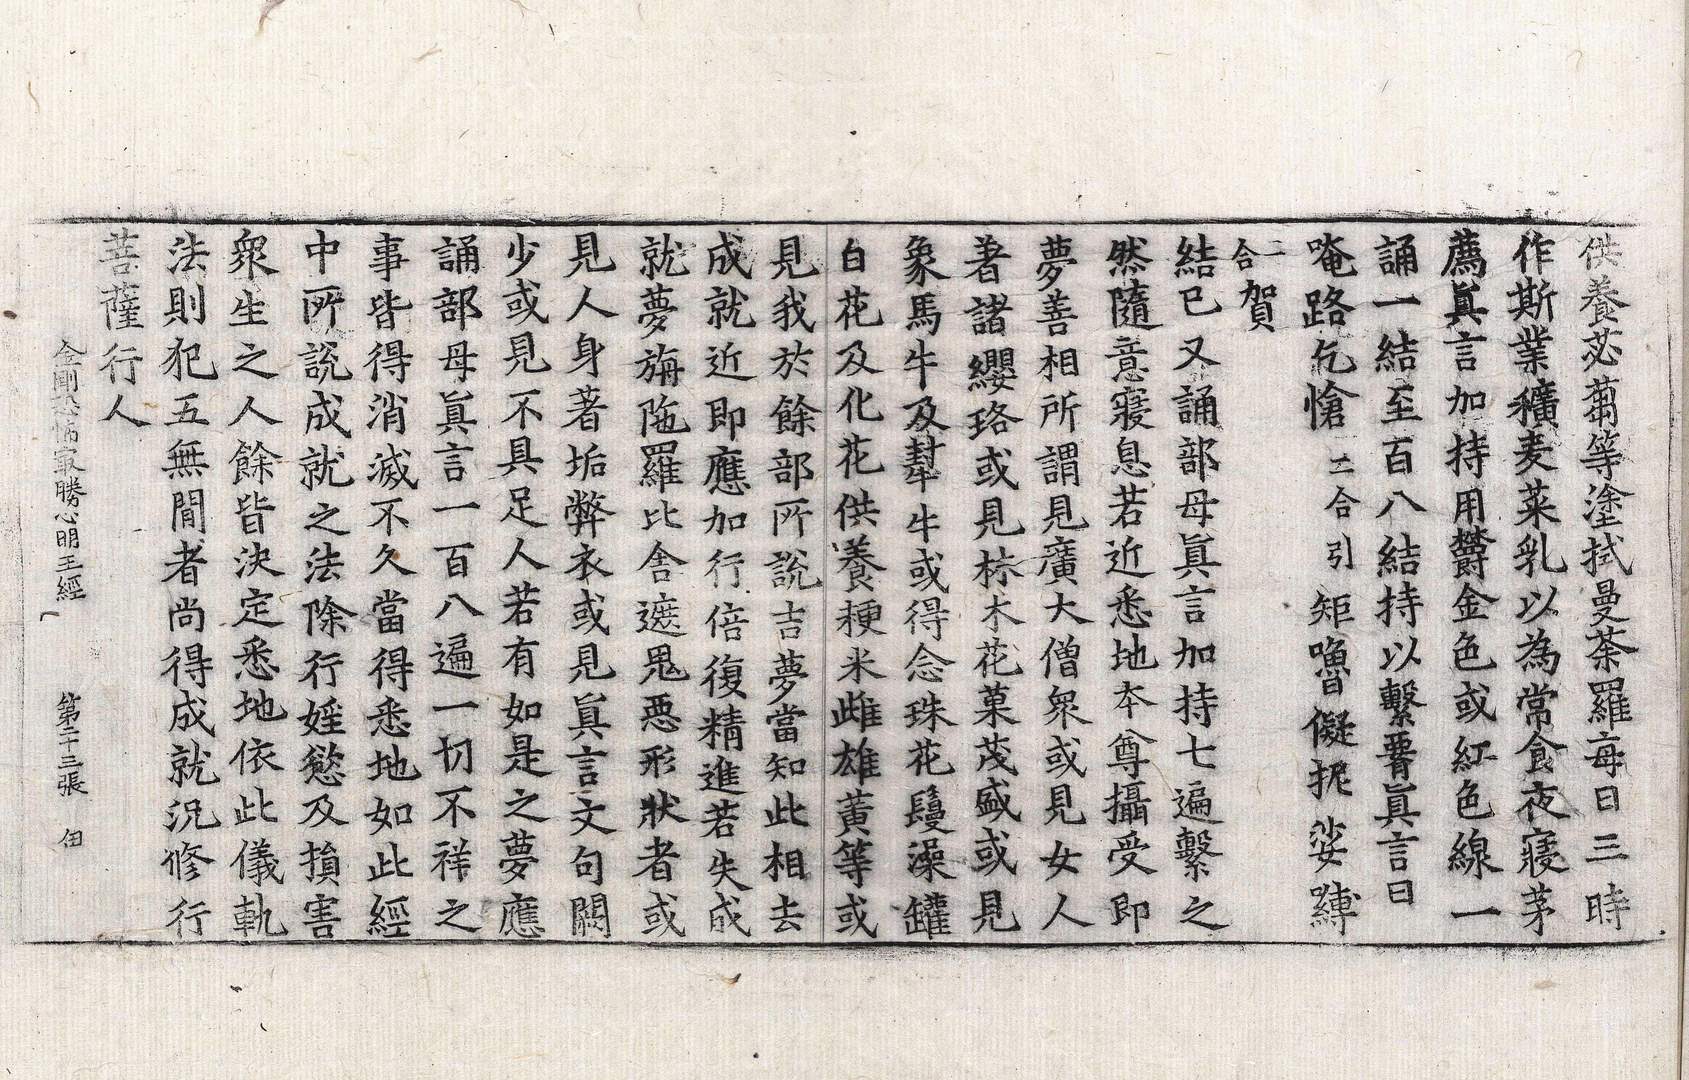 供養苾蒭等塗拭曼荼羅每日三時
作斯業穬麦菜乳以為常食夜寢茅
薦眞言加持用欝金色或紅色線一
誦一結至百八結持以繫𦝫眞言曰
唵路乞愴二合引矩嚕儗抳娑嚩
二合賀
結已又誦部母眞言加持七遍繫之
然隨意寢息若近悉地本尊攝受即
夢善相所謂見廣大僧衆或見女人
著諸纓珞或見林木花菓茂盛或見
象馬牛及犎牛或得念珠花鬘澡罐
白花及化花供養粳米雌雄黃等或
見我於餘部所說吉夢當知此相去
成就近即應加行倍復精進若失成
就夢旃陁羅比舍遮鬼惡形狀者或
見人身著垢弊衣或見眞言文句闕
少或見不具足人若有如是之夢應
誦部母眞言一百八遍一切不祥之
事皆得消滅不久當得悉地如此經
中所說成就之法除行婬慾及損害
衆生之人餘皆決定悉地依此儀軌
法則犯五無間者尚得成就況修行
菩薩行人
金剛恐怖最勝心明王經 第二十三張 佃